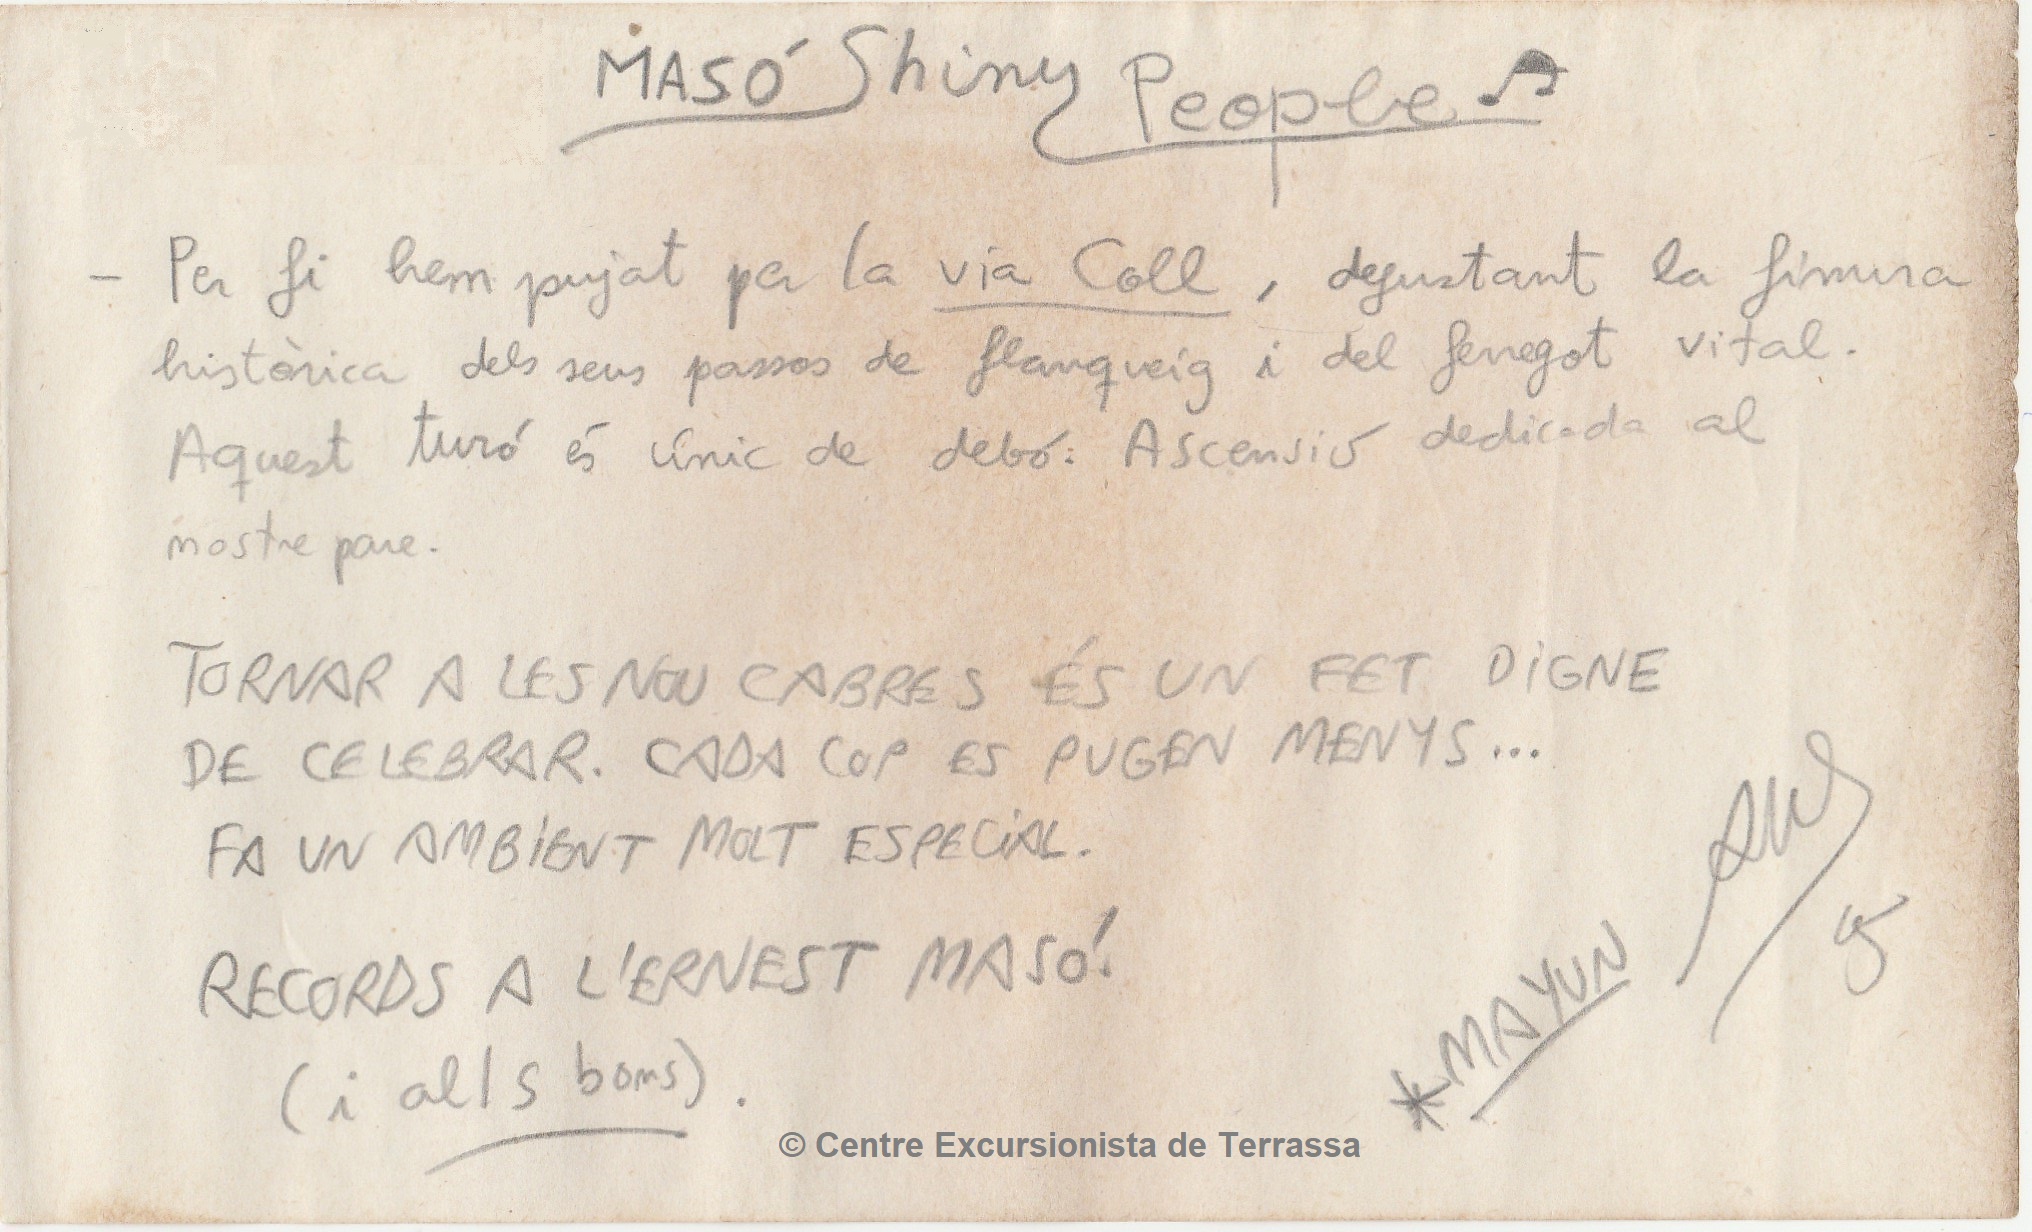 MASÓ Shiny People
- Per fi hem pujat per la via Coll, degustant la finura
històrica dels seus passos de flanqueig i del ferregot vital.
Aquest turó és únic de debó: Ascensió dedicada al
nostre pare.
TORNAR A LES NOU CABRES ÉS UN FET DIGNE
DE CELEBRAR. CADA COP ES PUGEN MENYS...
FA UN AMBIENT MOLT ESPECIAL.
RECORDS A L'ERNEST MASÓ!
(i alls bons).
*MAYUN
© Centre Excursionista de Terrassa